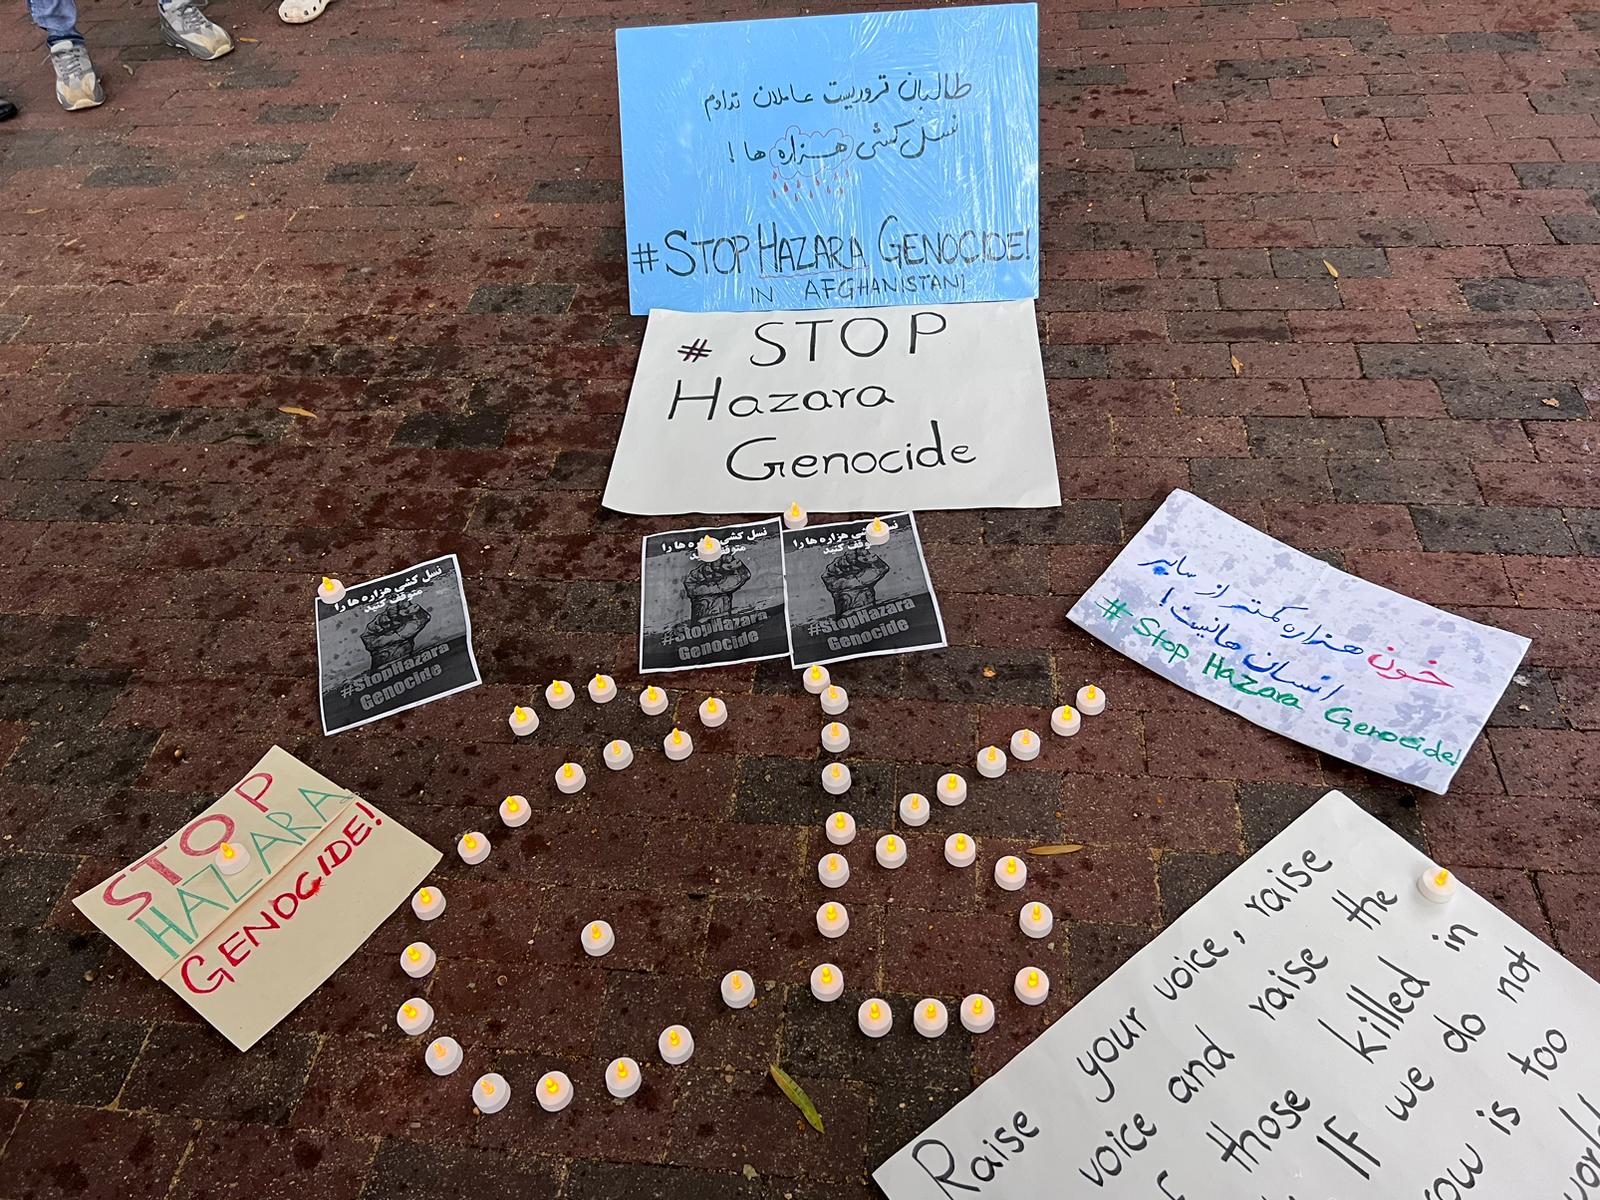 طالبان تروریست عاملان تداوم
نسل کشی هزاره ها!
#STOP HAZARA GENOCIDE!
IN AFGHANISTAN!
# STOP
Hazara
Genocide
نسل کشی هزاره ها را
متوقف کنید
#StopHazara
Genocide
نسل کشی هزاره ها را
متوقف کنید
#StopHazara
Genocide
هزاره ها را
#StopHazara
Genocide
خون هزاره کمتر از سایر
انسان هانیست!
# Stop Hazara Genocide!
STOP
HAZARA
GENOCIDE!
Raise your voice, raise
voice and raise the
those killed in
IF we do not
is too